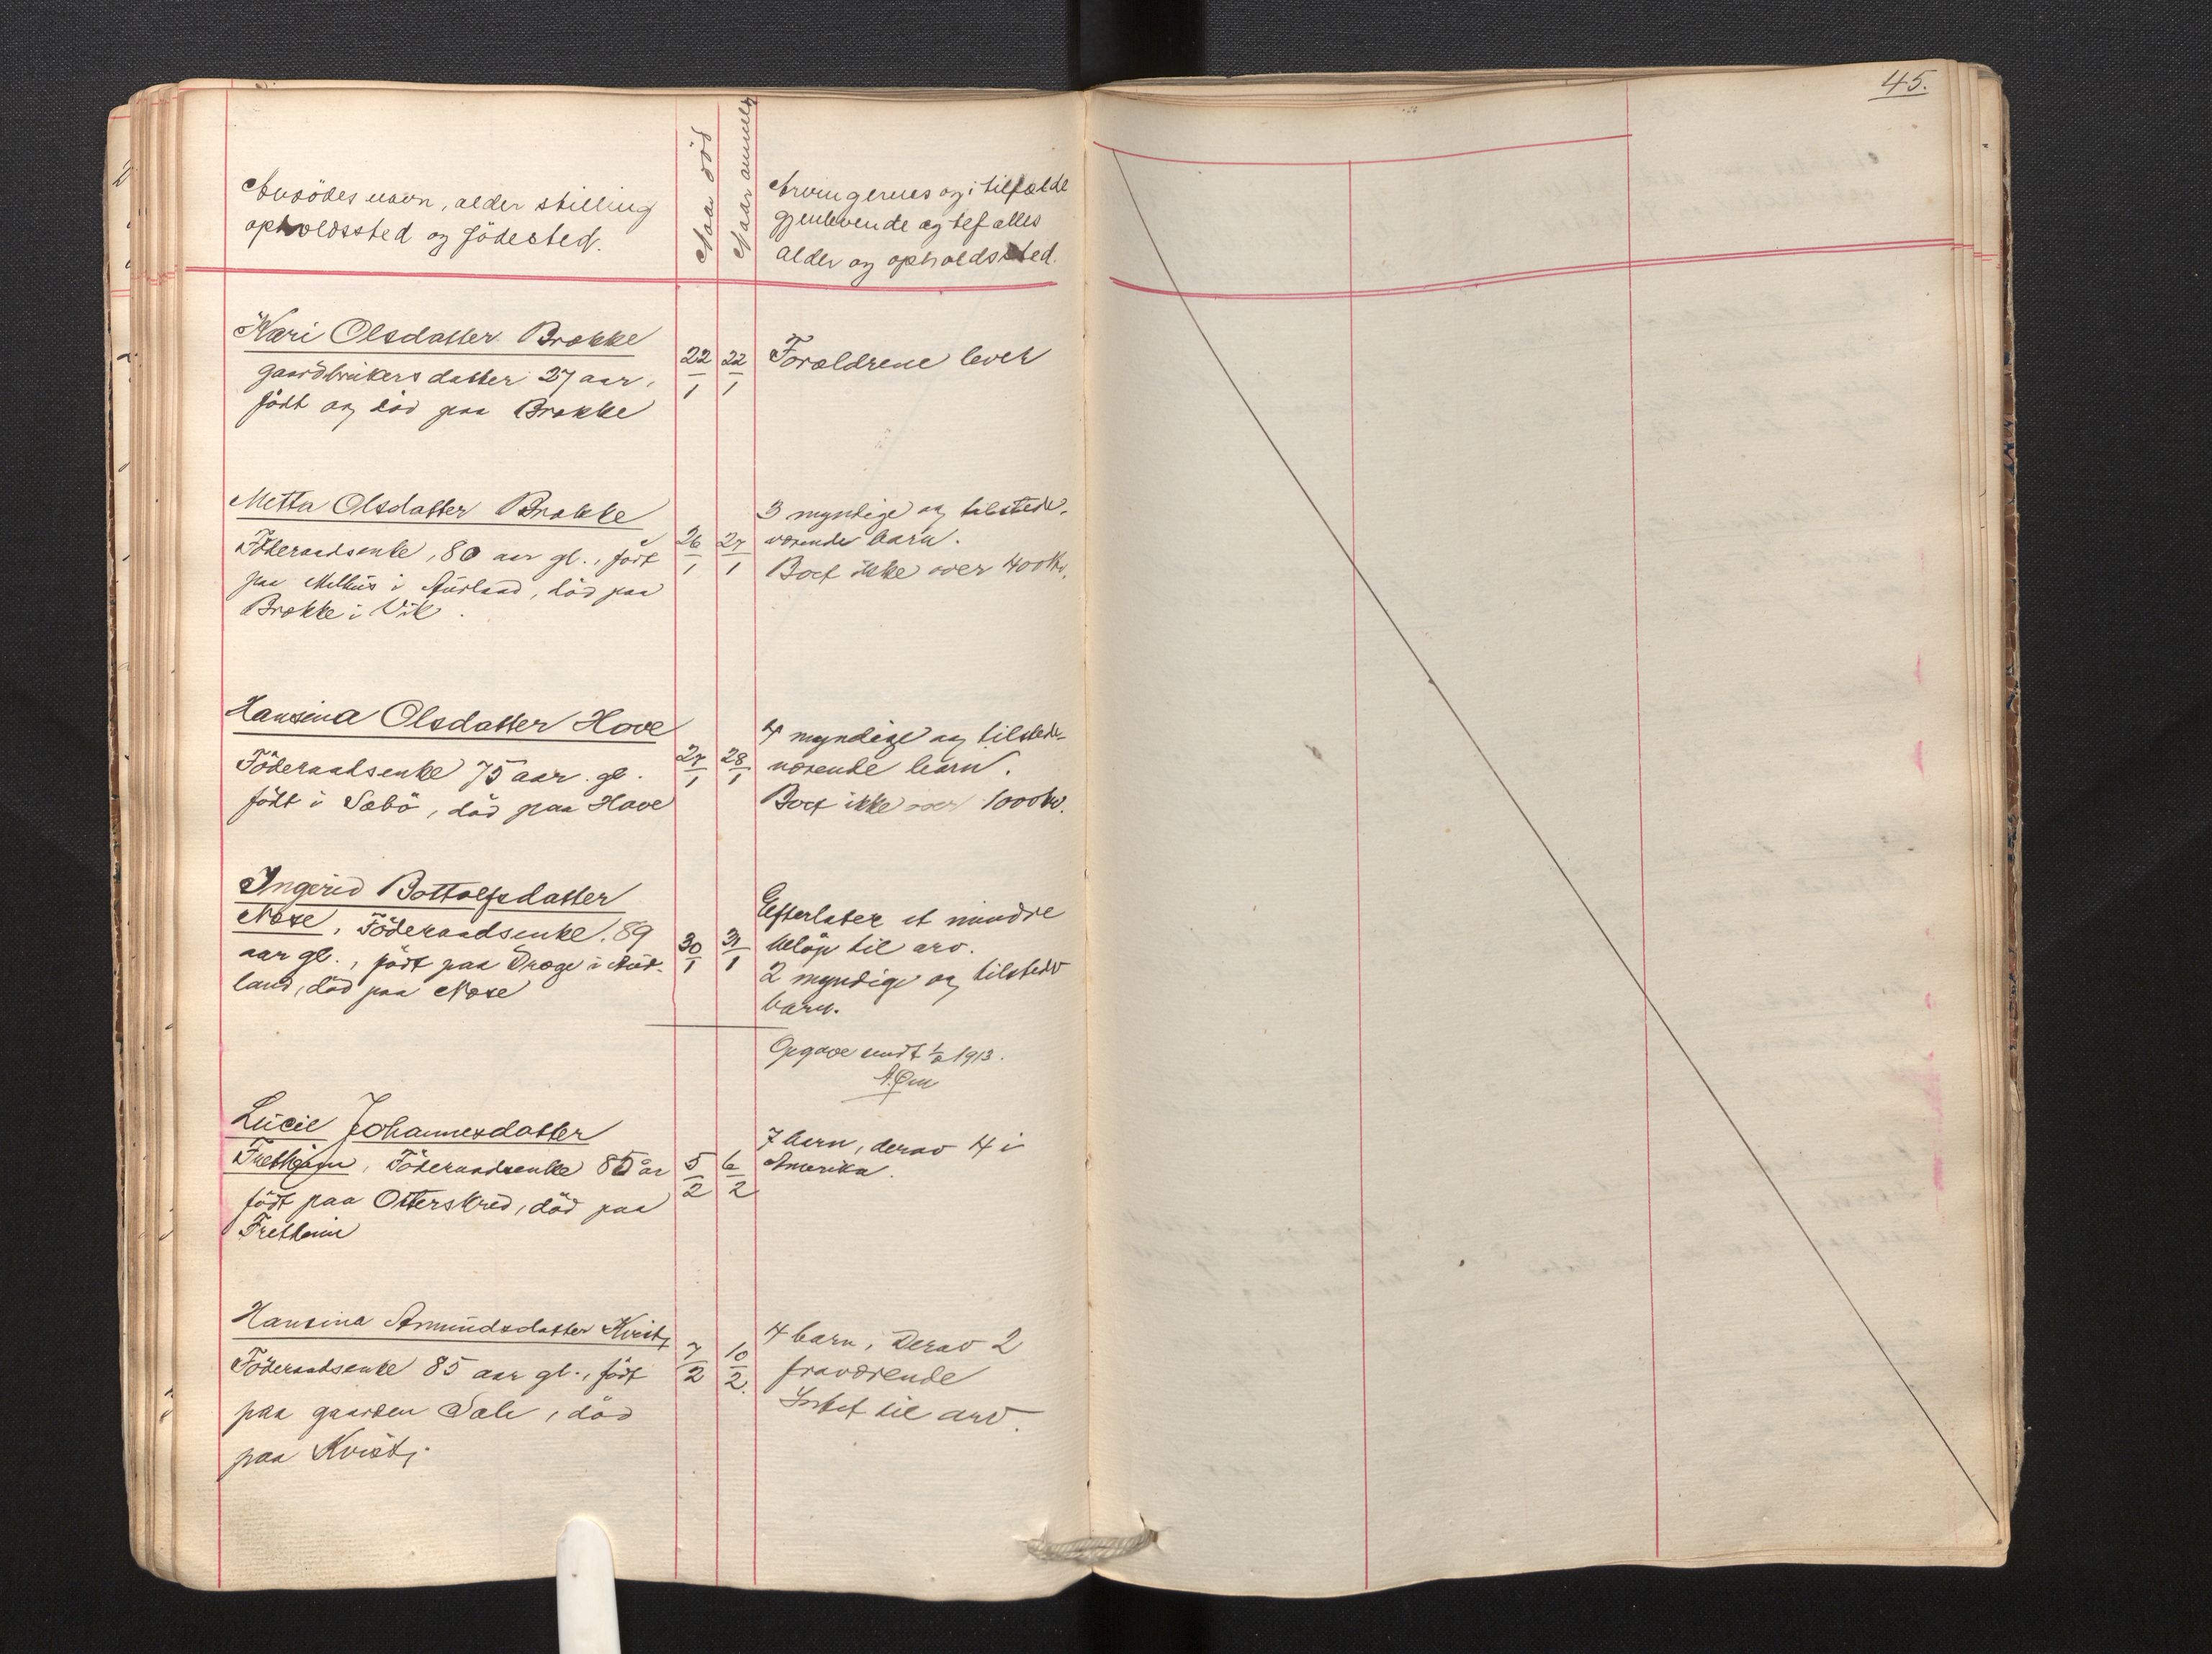 45.
Avdödes navn, alder stilling
opholdssted og födested.
Naar död
Naar anmeldt
Arvingernes og i tilfælde
gjenlevende egtefælles
alder og opholdssted.
Kari Olsdatter Brække
gaardbrukersdatter 27 aar,
födt og död paa Brække
22/1
22/1
Forældrene lever
Metta Olsdatter Brække
Föderaadsenke, 80 aar gl., födt
paa Melhus i Aurland, död paa
Brække i Vik.
26/1
27/1
3 myndige og tilstede-
værende barn.
Boet ikke over 400 kr.
Hansina Olsdatter Hove
Föderaadsenke 75 aar. gl.
födt i Sæbö, död paa Hove
27/1
28/1
4 myndige og tilstede-
værende barn.
Boet ikke over 1000 kr.
Ingerid Bottolfsdatter
Nøse, Föderaadsenke, 89
aar gl., födt paa Drøge i Aur-
land, död paa Nøse
30/1
31/1
Efterlater et mindre
beløp til arv.
2 myndige og tilstedv
barn.
Opgave sendt 1/2 1913.
Lucie Johannesdatter
Fretheim, Föderaadsenke 85 år
födt paa Otterskred, död paa
Fretheim
5/2
6/2
7 barn, derav 4 i
Amerika.
Hansina Amundsdatter Kvist,
Föderaadsenke 85 aar gl., födt
paa gaarden Sale, död
paa Kvist,.
7/2
10/2.
4 barn, derav 2
fraværende
Intet til arv.